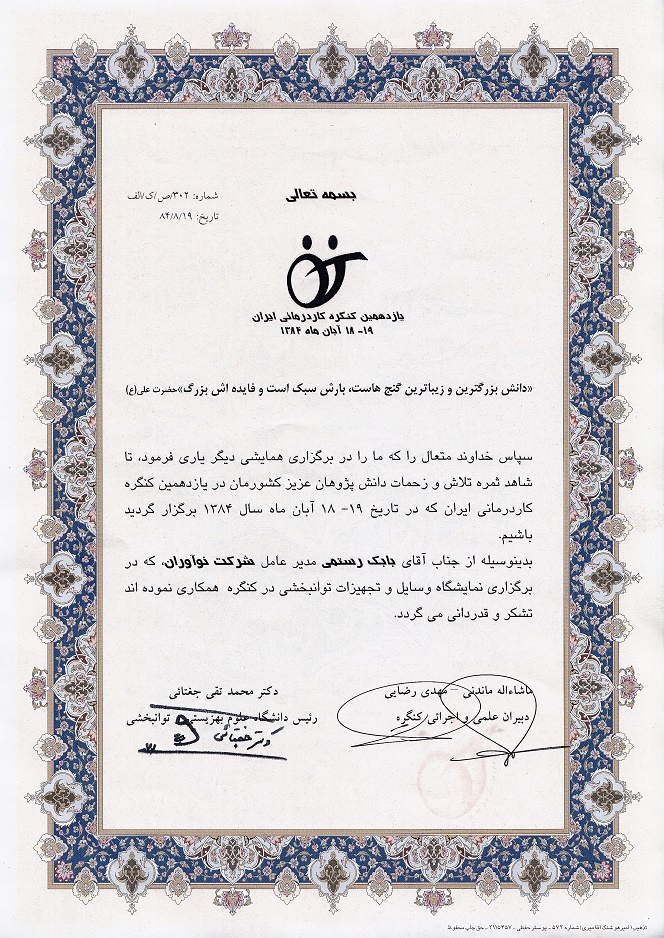 بسمه تعالی
شماره: ۳۰۲/ص/ک/الف
تاریخ: ۸۴/۸/۱۹
یازدهمین کنگره کاردرمانی ایران
۱۹- ۱۸ آبان ماه ۱۳۸۴
«دانش بزرگترین و زیباترین گنج هاست، بارش سبک است و فایده اش بزرگ»حضرت علی(ع)
سپاس خداوند متعال را که ما را در برگزاری همایشی دیگر یاری فرمود، تا
شاهد ثمره تلاش و زحمات دانش پژوهان عزیز کشورمان در یازدهمین کنگره
کاردرمانی ایران که در تاریخ ۱۹- ۱۸ آبان ماه سال ۱۳۸۴ برگزار گردید
باشیم.
بدینوسیله از جناب آقای بابک رستمی مدیر عامل شرکت نوآوران، که در
برگزاری نمایشگاه وسایل و تجهیزات توانبخشی در کنگره همکاری نموده اند
تشکر و قدردانی می گردد.
ماشاءاله ماندنی – مهدی رضایی
دبیران علمی و اجرائی کنگره
دکتر محمد تقی جغتائی
رئیس دانشگاه علوم بهزیستی و توانبخشی
دکتر جغتائی
تذهیب: امیرهوشنگ آقامیری شماره ۵۷۲ - پوستر حفظی - ۲۱۱۵۴۵۷ - حق چاپ محفوظ